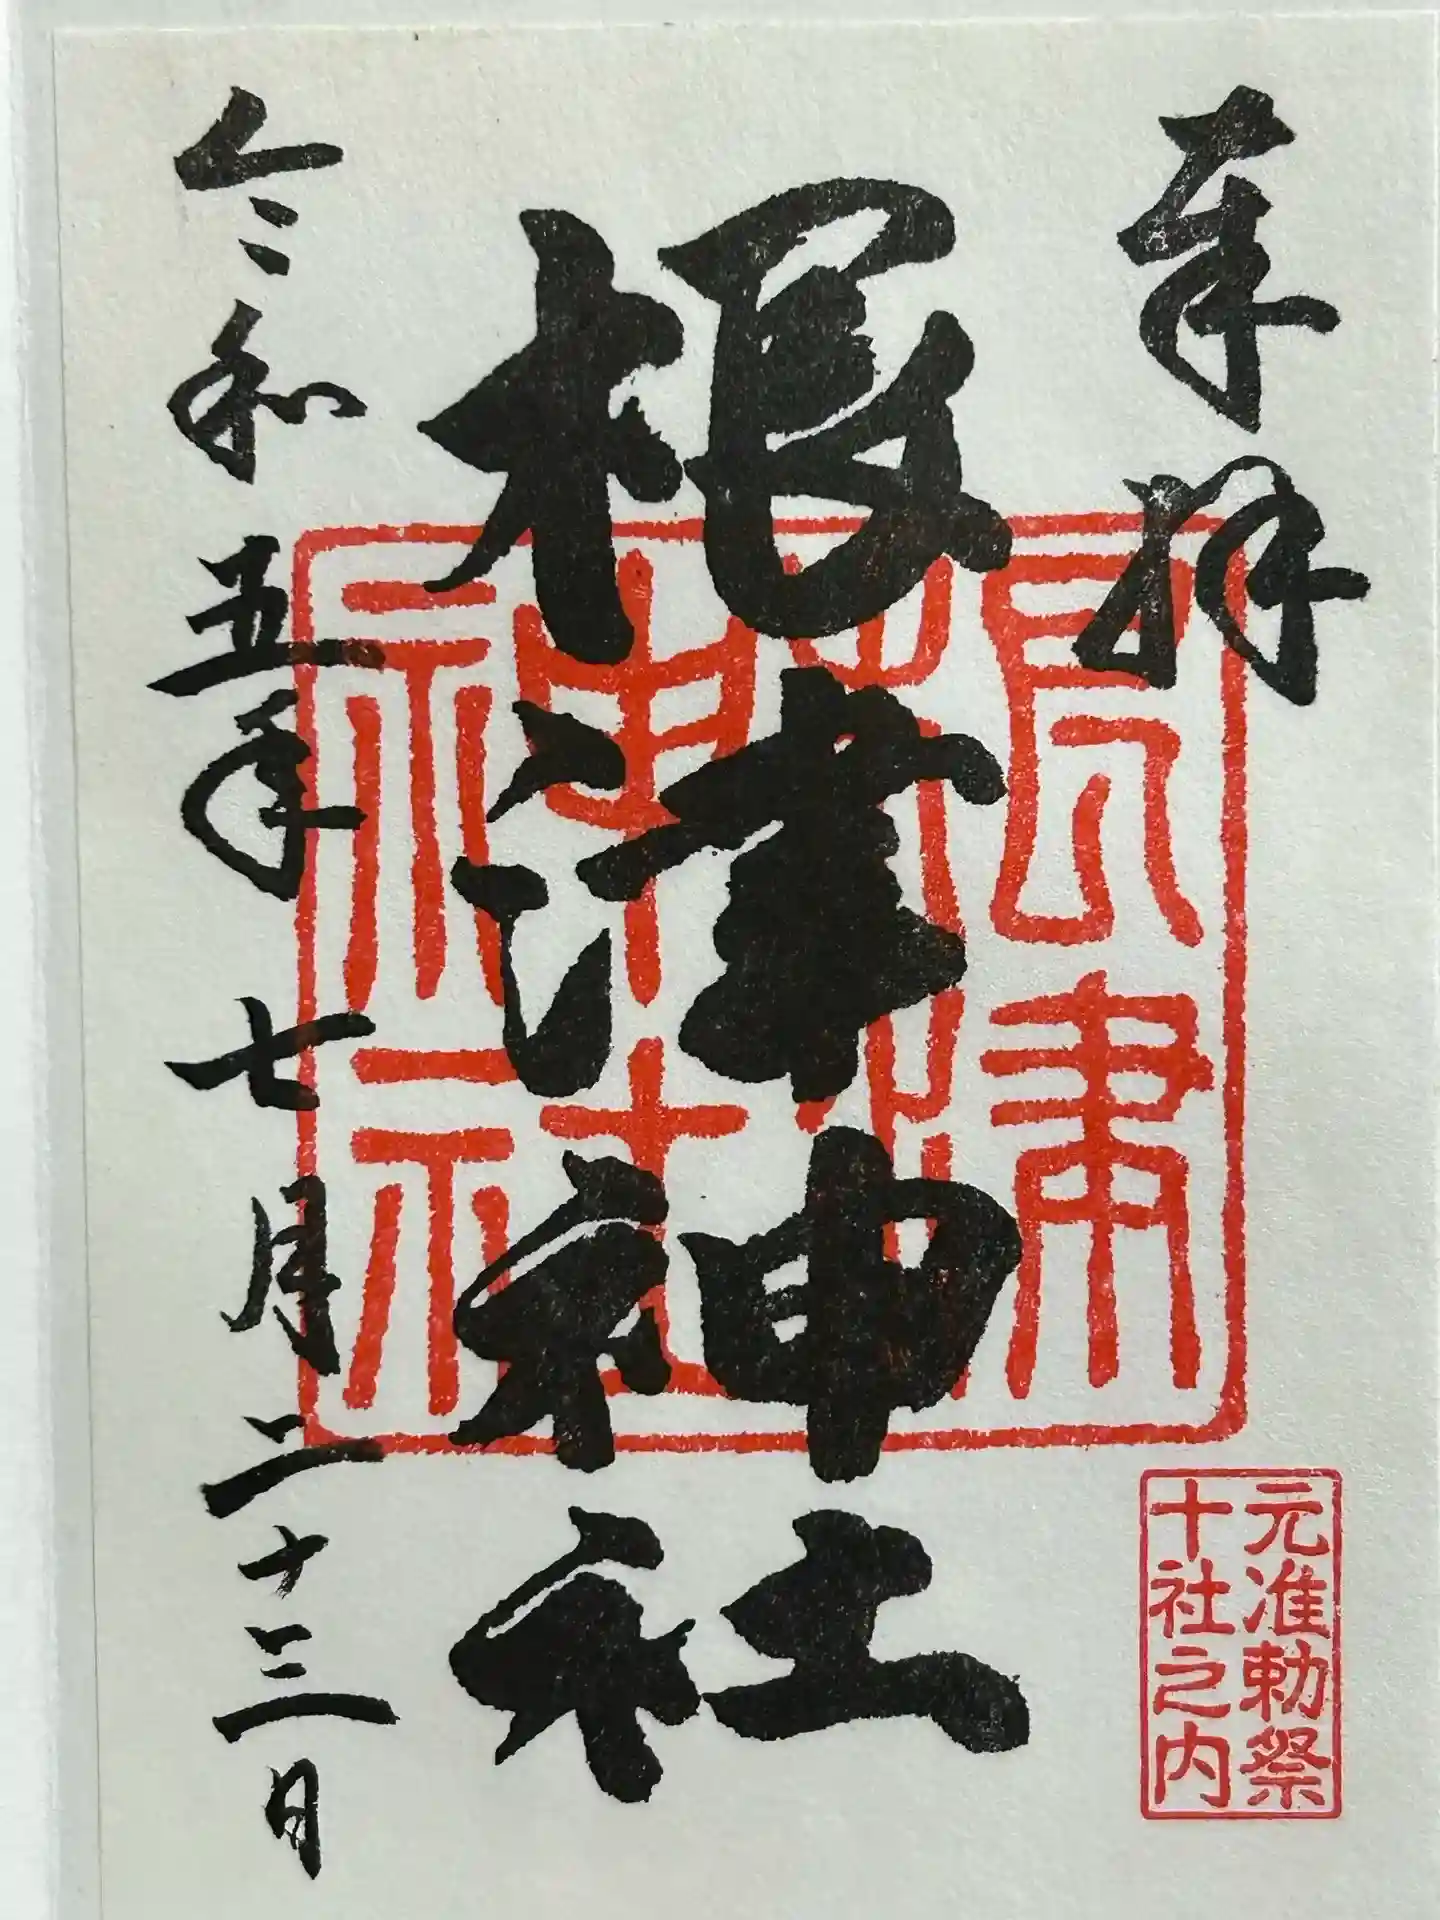 奉拝
元准勅祭
十社之内
根津神社
根津神社
令和五年七月二十三日